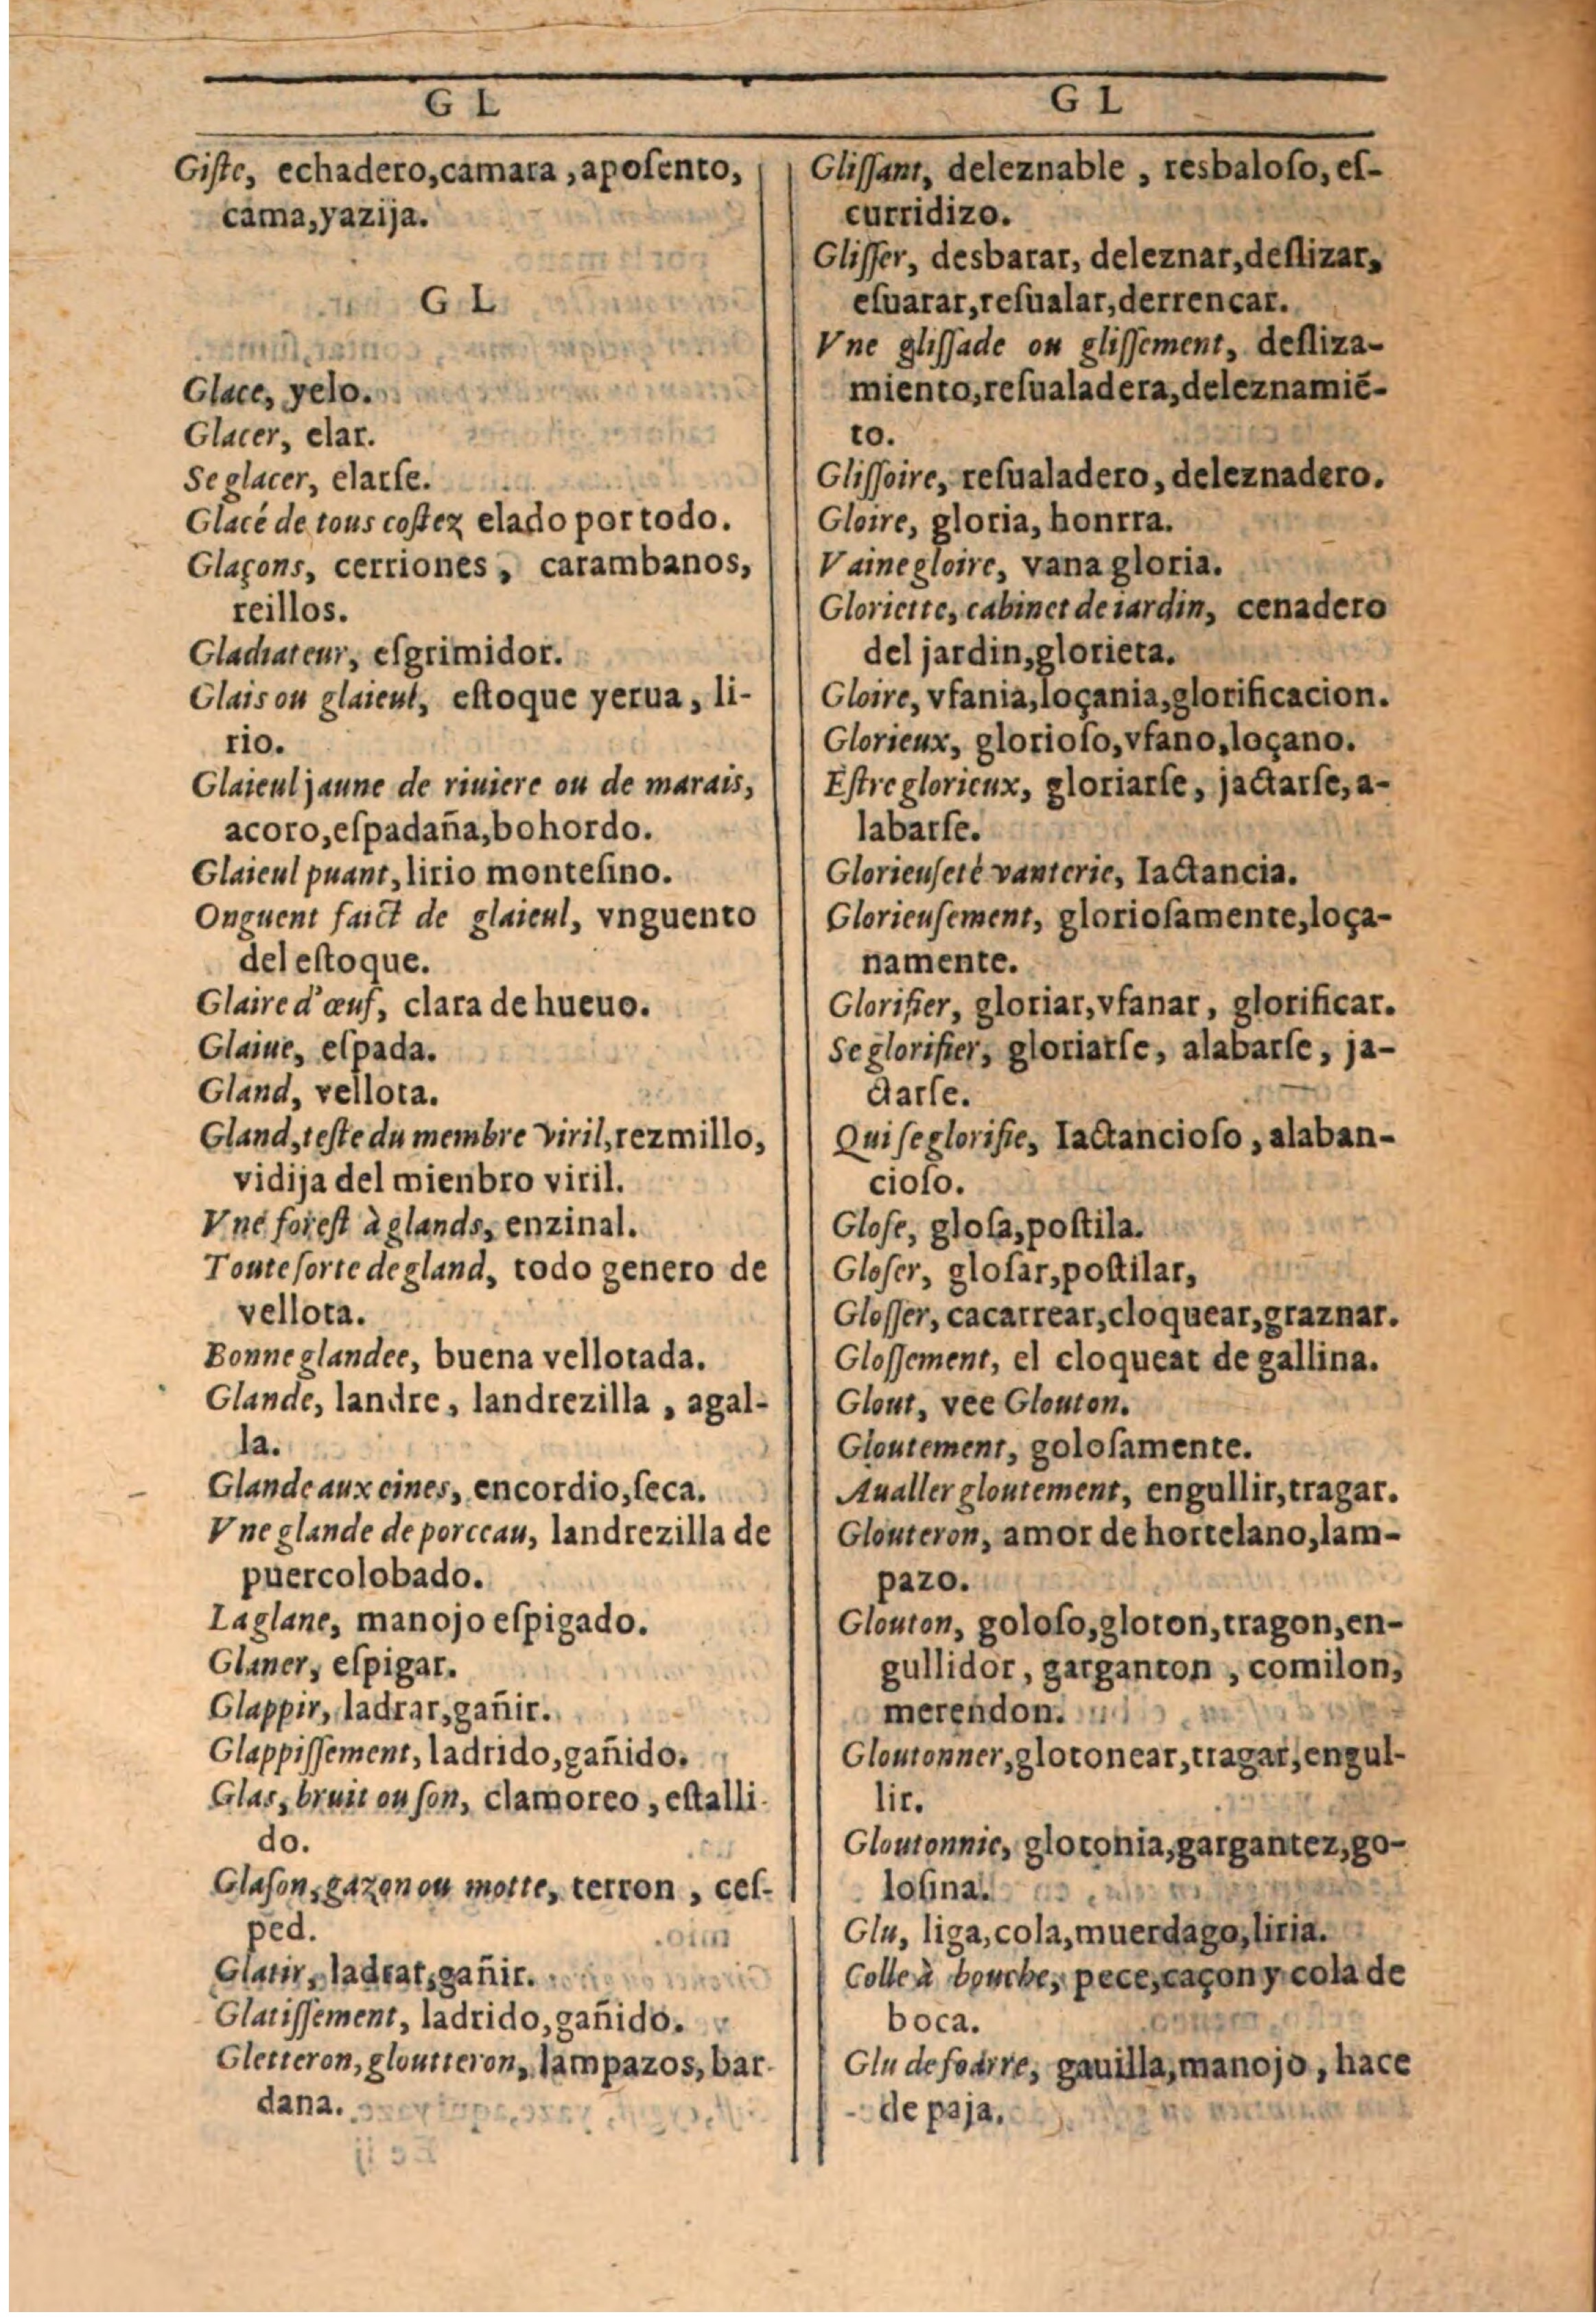 G L
Giſte, echadero,camara,apoſento,
cama,yazija.
G L
Glace, yelo.
Glacer, elar.
Se glacer, elarſe.
Glacé de tous coſtez elado por todo.
Glaçons, cerriones, carambanos,
reillos.
Gladiateur, eſgrimidor.
Glais ou glaieul, eſtoque yerua, li-
rio.
Glaieul jaune de riuiere ou de marais,
acoro,eſpadaña,bohordo.
Glaieul puant,lirio monteſino.
Onguent faict de glaieul, vnguento
del eſtoque.
Glaire d'œuf, clara de hueuo.
Glaiue, eſpada.
Gland, vellota.
Gland,teſte du membre viril,rezmillo,
vidija del mienbro viril.
Vne foreſt à glands, enzinal.
Toute ſorte de gland, todo genero de
vellota.
Bonne glandee, buena vellotada.
Glande, landre, landrezilla, agal-
la.
Glande aux eines, encordio,ſeca.
Vne glande de porceau, landrezilla de
puercolobado.
La glane, manojo eſpigado.
Glaner, eſpigar.
Glappir, ladrar,gañir.
Glappiſſement, ladrido,gañido.
Glas, bruit ou ſon, clamoreo, eſtalli-
do.
Glaſon, gazon ou motte, terron, ceſ-
ped.
Glatir, ladrar,gañir.
Glatiſſement, ladrido,gañido.
Gletteron,gloutteron, lampazos,bar-
dana.
G L
Gliſſant, deleznable, resbaloſo,eſ-
curridizo.
Gliſſer, desbarar, deleznar,deſlizar,
eſuarar,reſualar,derrencar.
Vne gliſſade ou gliſſement, deſliza-
miento,reſualadera,deleznamiẽ-
to.
Gliſſoire, reſualadero,deleznadero.
Gloire, gloria, honrra.
Vaine gloire, vana gloria.
Gloriette, cabinet de iardin, cenadero
del jardin,glorieta.
Gloire, vfania,loçania,glorificacion.
Glorieux, glorioſo,vfano,loçano.
Eſtre glorieux, gloriarſe, jactarſe,a-
labarſe.
Glorieuſeté vanterie, Iactancia.
Glorieuſement, glorioſamente,loça-
namente.
Glorifier, gloriar,vfanar, glorificar.
Se glorifier, gloriarſe, alabarſe, ja-
ctarſe.
Qui ſe glorifie, Iactancioſo,alaban-
cioſo.
Gloſe, gloſa,poſtila.
Gloſer, gloſar,poſtilar,
Gloſſer, cacarrear,cloquear,graznar.
Gloſſement, el cloquear de gallina.
Glout, vee Glouton.
Gloutement, goloſamente.
Aualler gloutement, engullir,tragar.
Glouteron, amor de hortelano,lam-
pazo.
Glouton, goloſo,gloton,tragon,en-
gullidor, garganton, comilon,
merendon.
Gloutonner,glotonear,tragar,engul-
lir.
Gloutonnie, glotonia,gargantez,go-
loſina.
Glu, liga,cola,muerdago,liria.
Colle à bouche, pece,caçon y cola de
boca.
Glu de foarre, gauilla,manojo, hace
de paja.